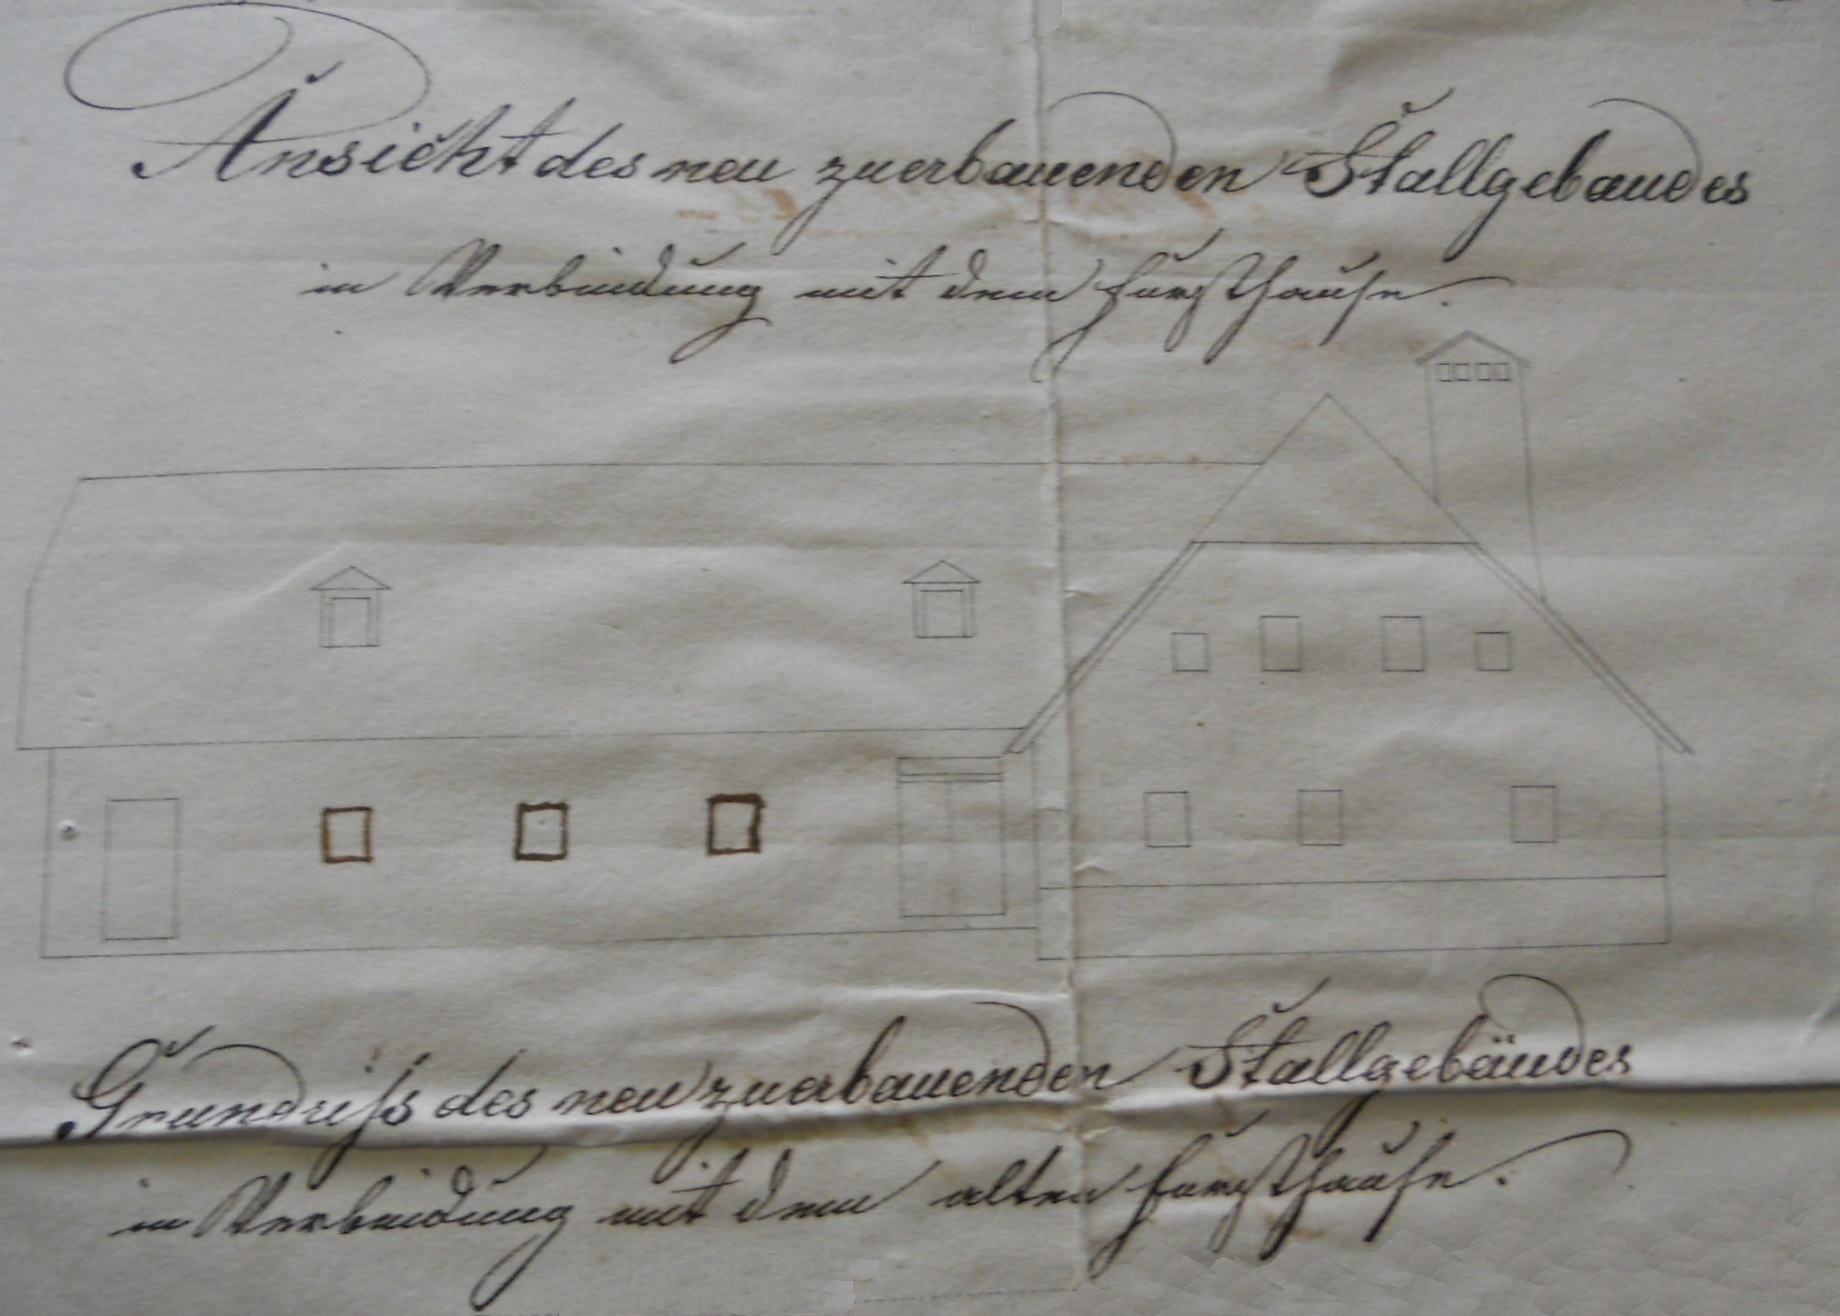 Ansicht des neu zuerbauenden Stallgebaudes
in Verbindung mit dem Fursthause.
Grundriss des neu zuerbauenden Stallgebäudes
in Verbindung mit dem alten Fursthause.